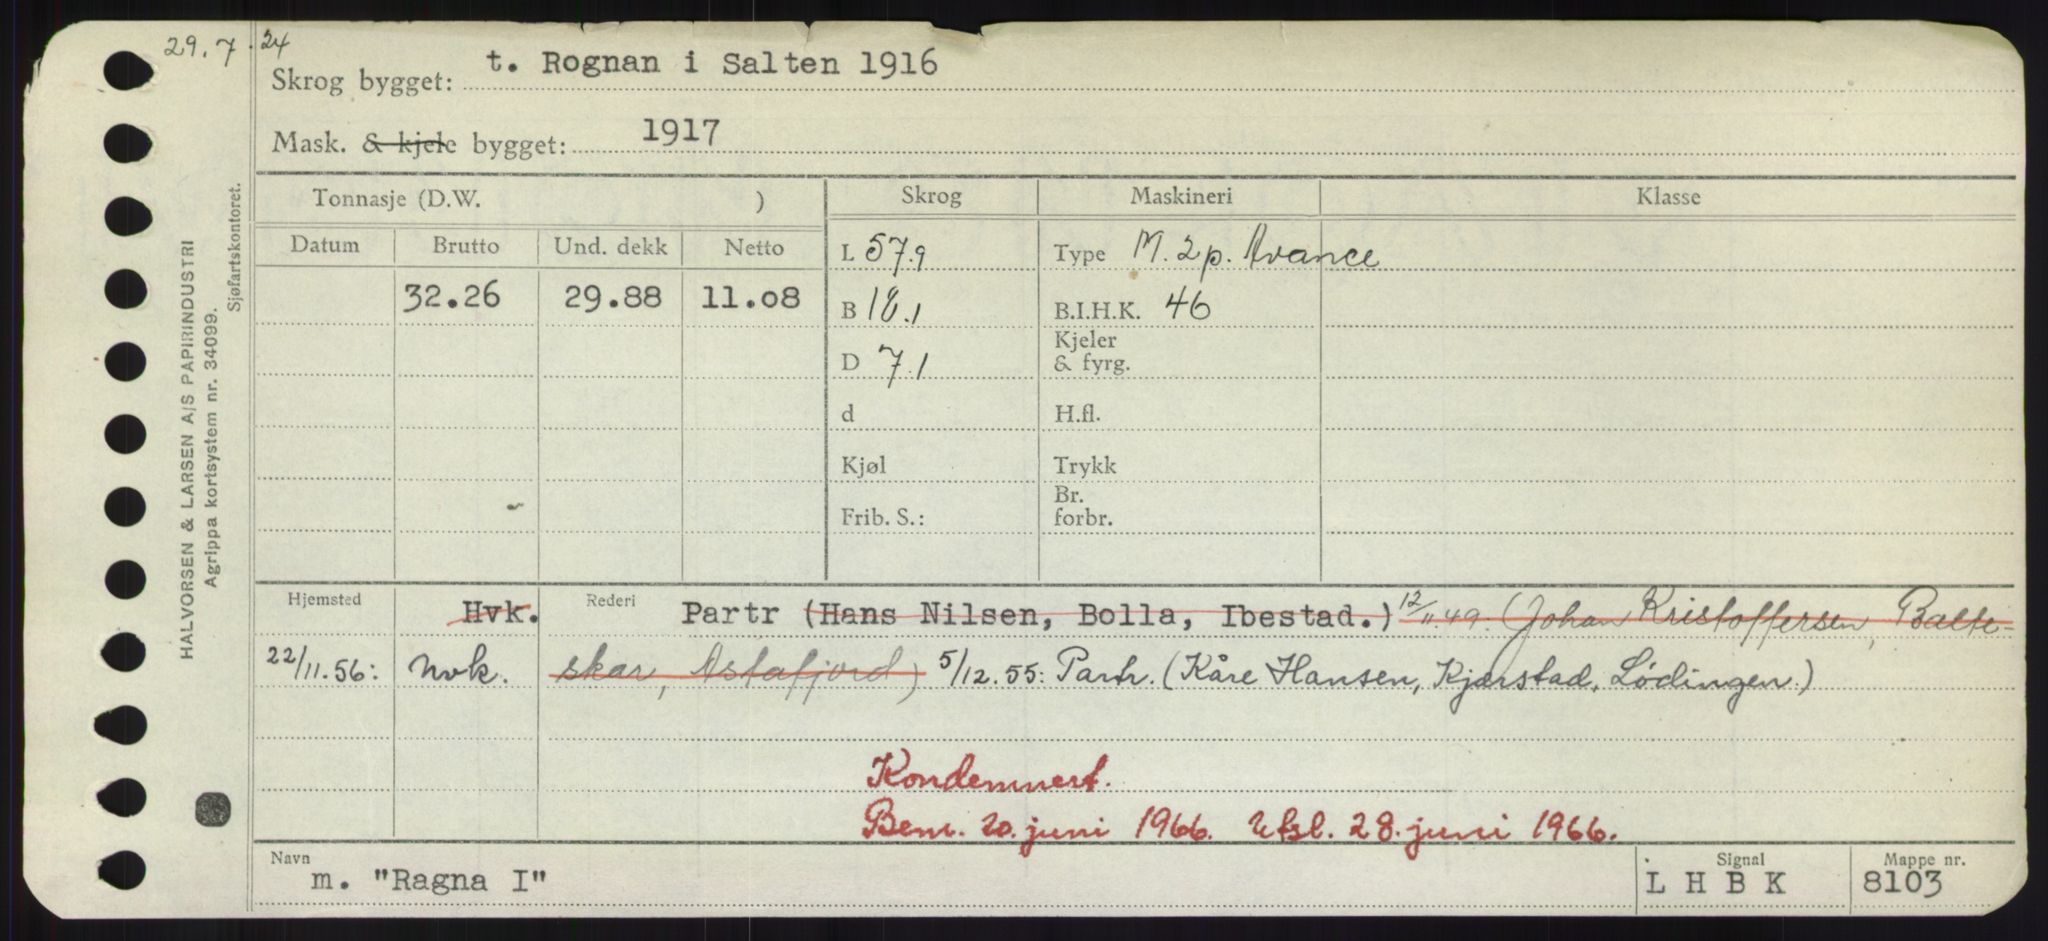 29.7.24
Skrog bygget: t. Rognan i Salten 1916
Mask. & kjele bygget: 1917
HALVORSEN & LARSEN A/S PAPIRINDUSTRI
Agrippa kortsystem nr. 34099.
Sjøfartskontoret.
Tonnasje (D.W. ) Skrog Maskineri Klasse
Datum Brutto Und. dekk Netto L 57.9 Type M. 2 p. Avance
32.26 29.88 11.08 B 18.1 B.I.H.K. 46
D 7.1 Kjeler & fyrg.
d H.fl.
Kjøl Trykk
Frib. S.: Br. forbr.
Hjemsted Hvk. Rederi Partr (Hans Nilsen, Bolla, Ibestad.) 12/11.49: (Johan Kristoffersen, Balte-
22/11.56: Nvk. skar, Astafjord) 5/12.55: Partr. (Kåre Hansen, Kjerstad, Lødingen.)
Kondemnert.
Bem. 20. juni 1966. Utsl. 28. juni 1966.
Navn m. "Ragna I" Signal L H B K Mappe nr. 8103